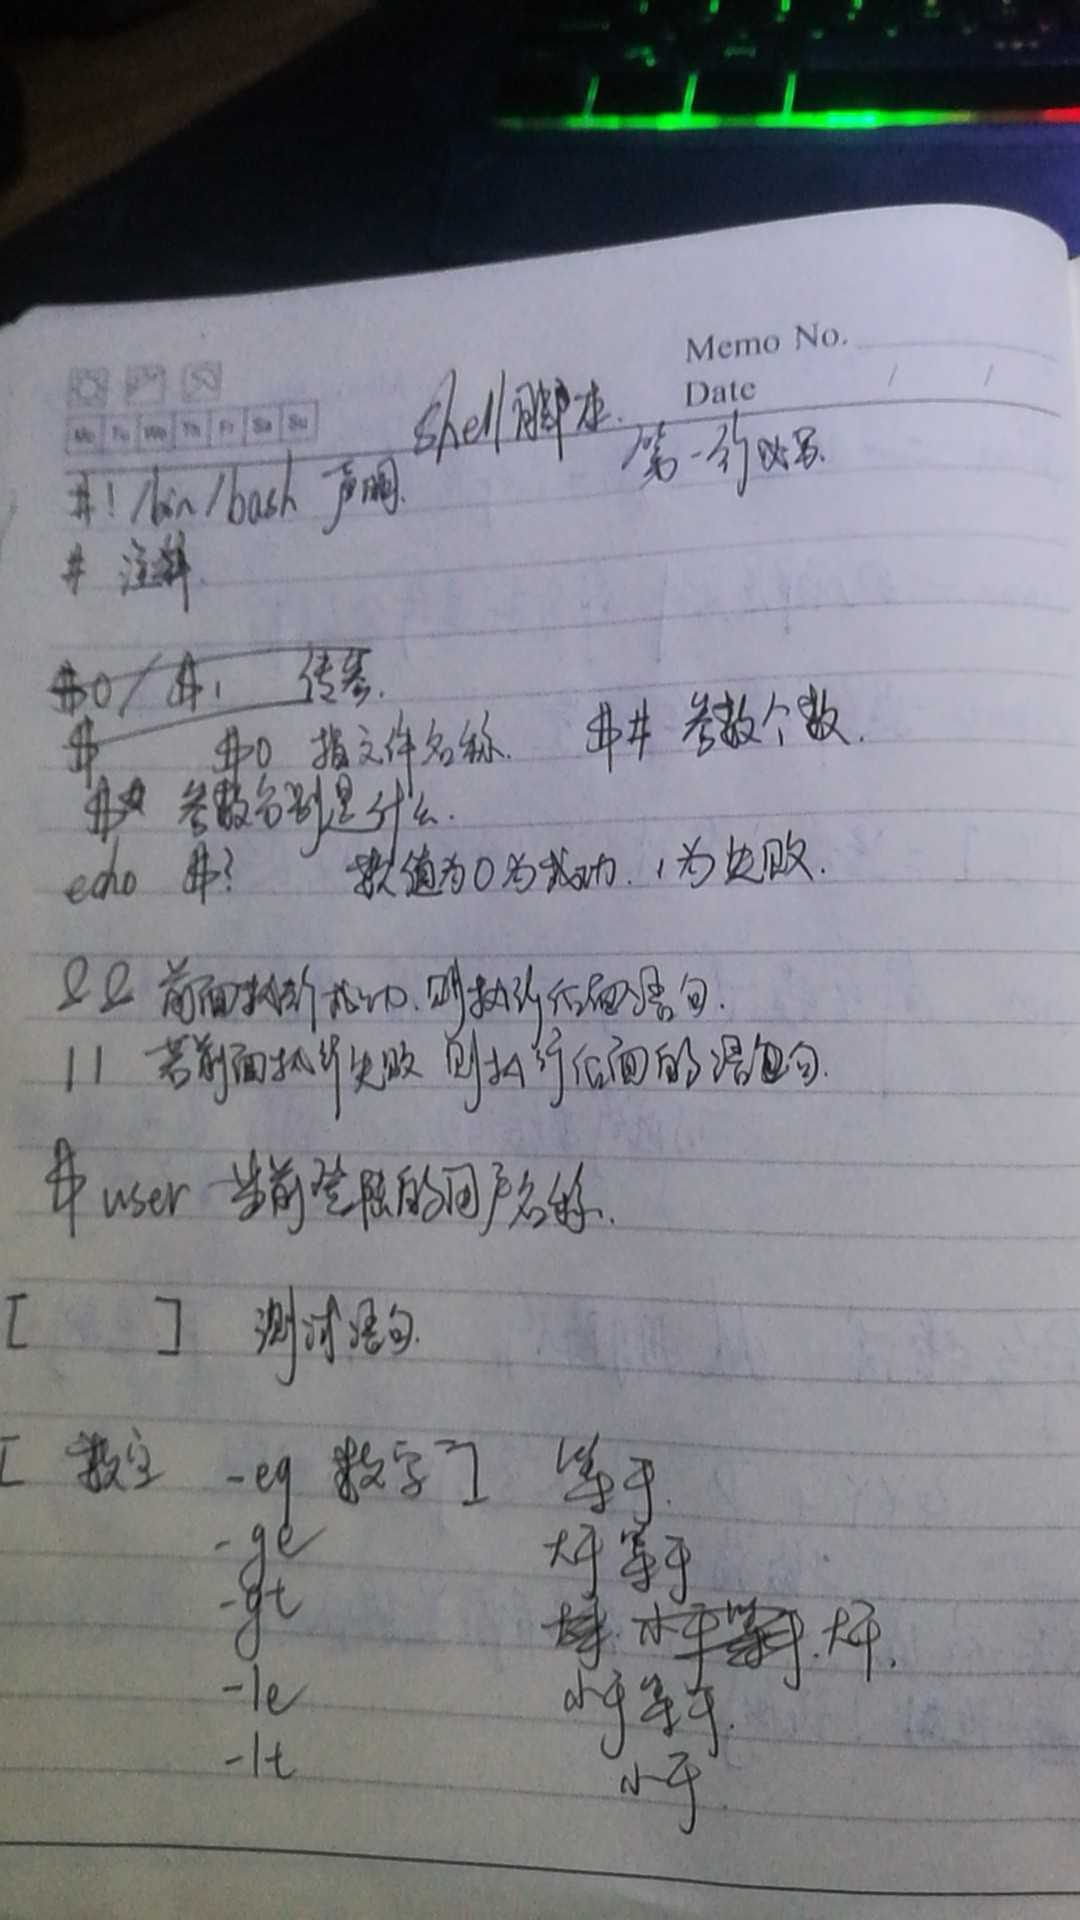 Memo No.
Date / /
Mo Tu We Th Fr Sa Su
shell脚本.
#!/bin/bash 声明. 第一行必写.
# 注释.
$0/$1 传参.
$
$0 指文件名称. $# 参数个数.
$* 参数分别是什么.
echo $? 数值为0为成功. 1为失败.
&& 前面执行成功.则执行后面语句.
|| 若前面执行失败 则执行后面的语句.
$user 当前登陆的用户名称.
[ ] 测试语句.
[ 数字 -eq 数字 ] 等于.
-ge 大于等于
-gt 大于.
-le 小于等于.
-lt 小于.